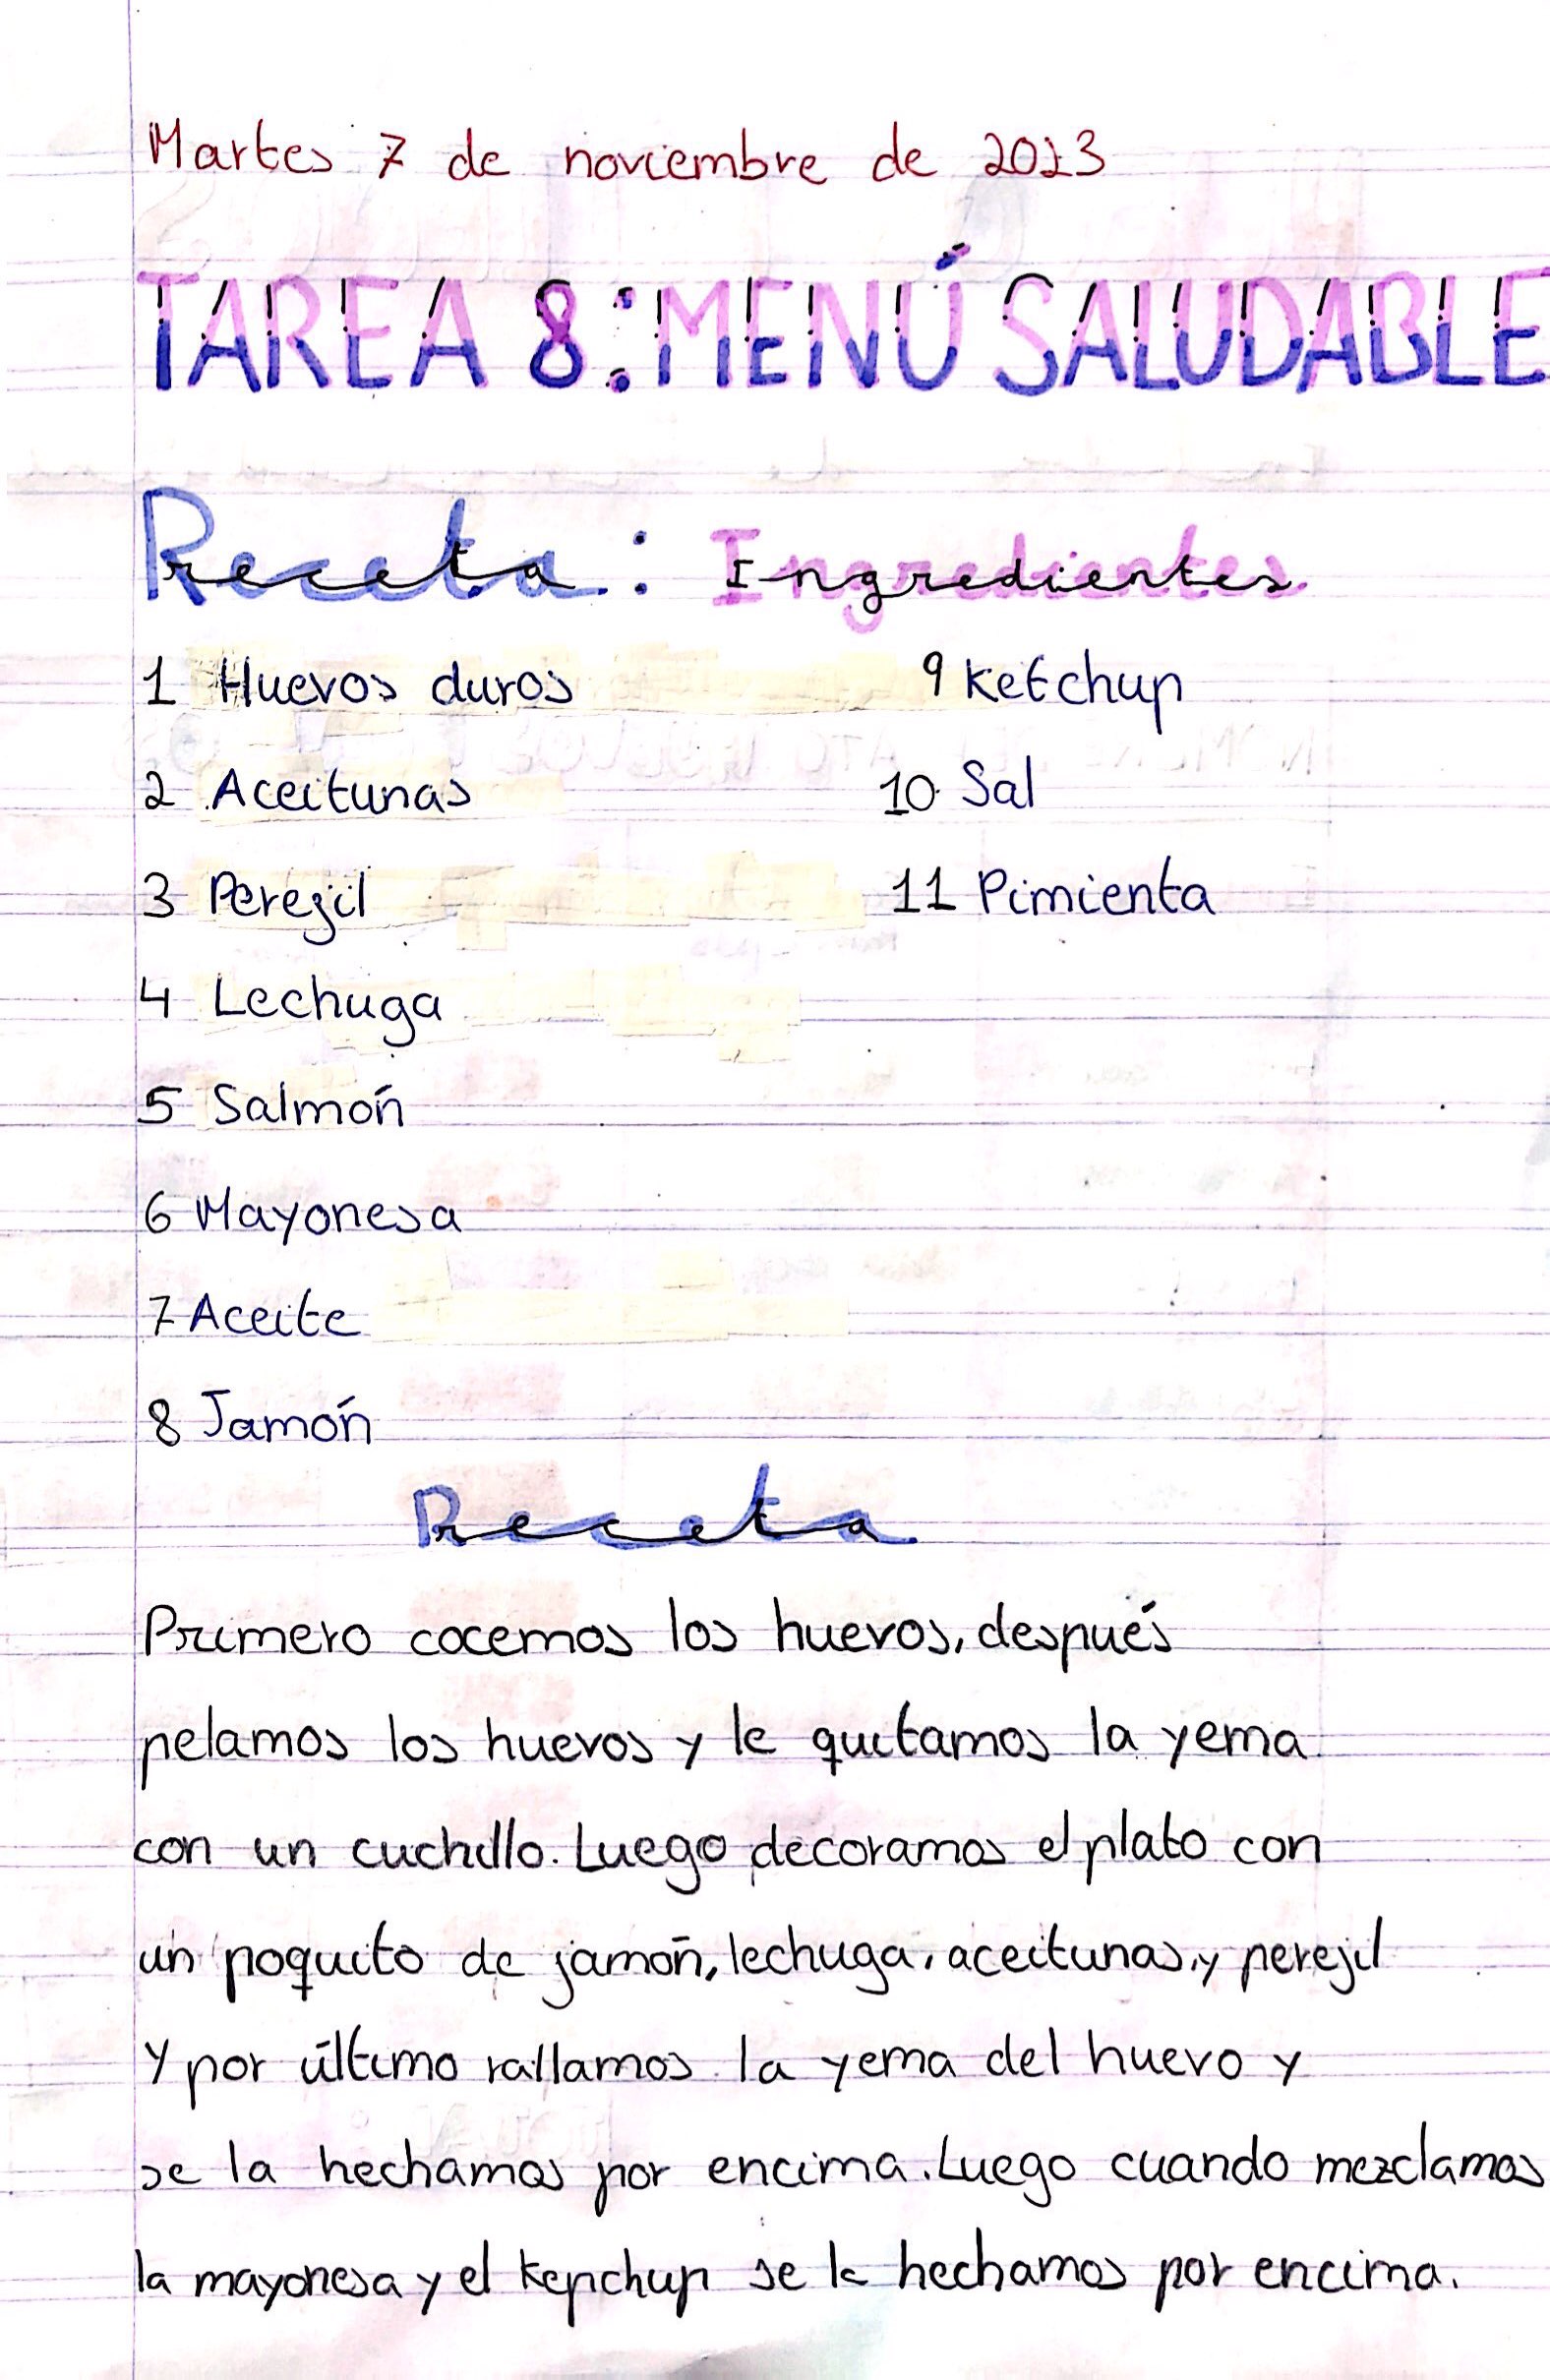 Martes 7 de noviembre de 2023
TAREA 8: MENÚ SALUDABLE
Receta: Ingredientes
1 Huevos duros
2 Aceitunas
3 Perejil
4 Lechuga
5 Salmón
6 Mayonesa
7 Aceite
8 Jamón
9 Ketchup
10 Sal
11 Pimienta
Receta
Primero cocemos los huevos, después
pelamos los huevos y le quitamos la yema
con un cuchillo. Luego decoramos el plato con
un poquito de jamón, lechuga, aceitunas, y perejil
Y por último rallamos la yema del huevo y
se la hechamos por encima. Luego cuando mezclamos
la mayonesa y el kepchup se le hechamos por encima.